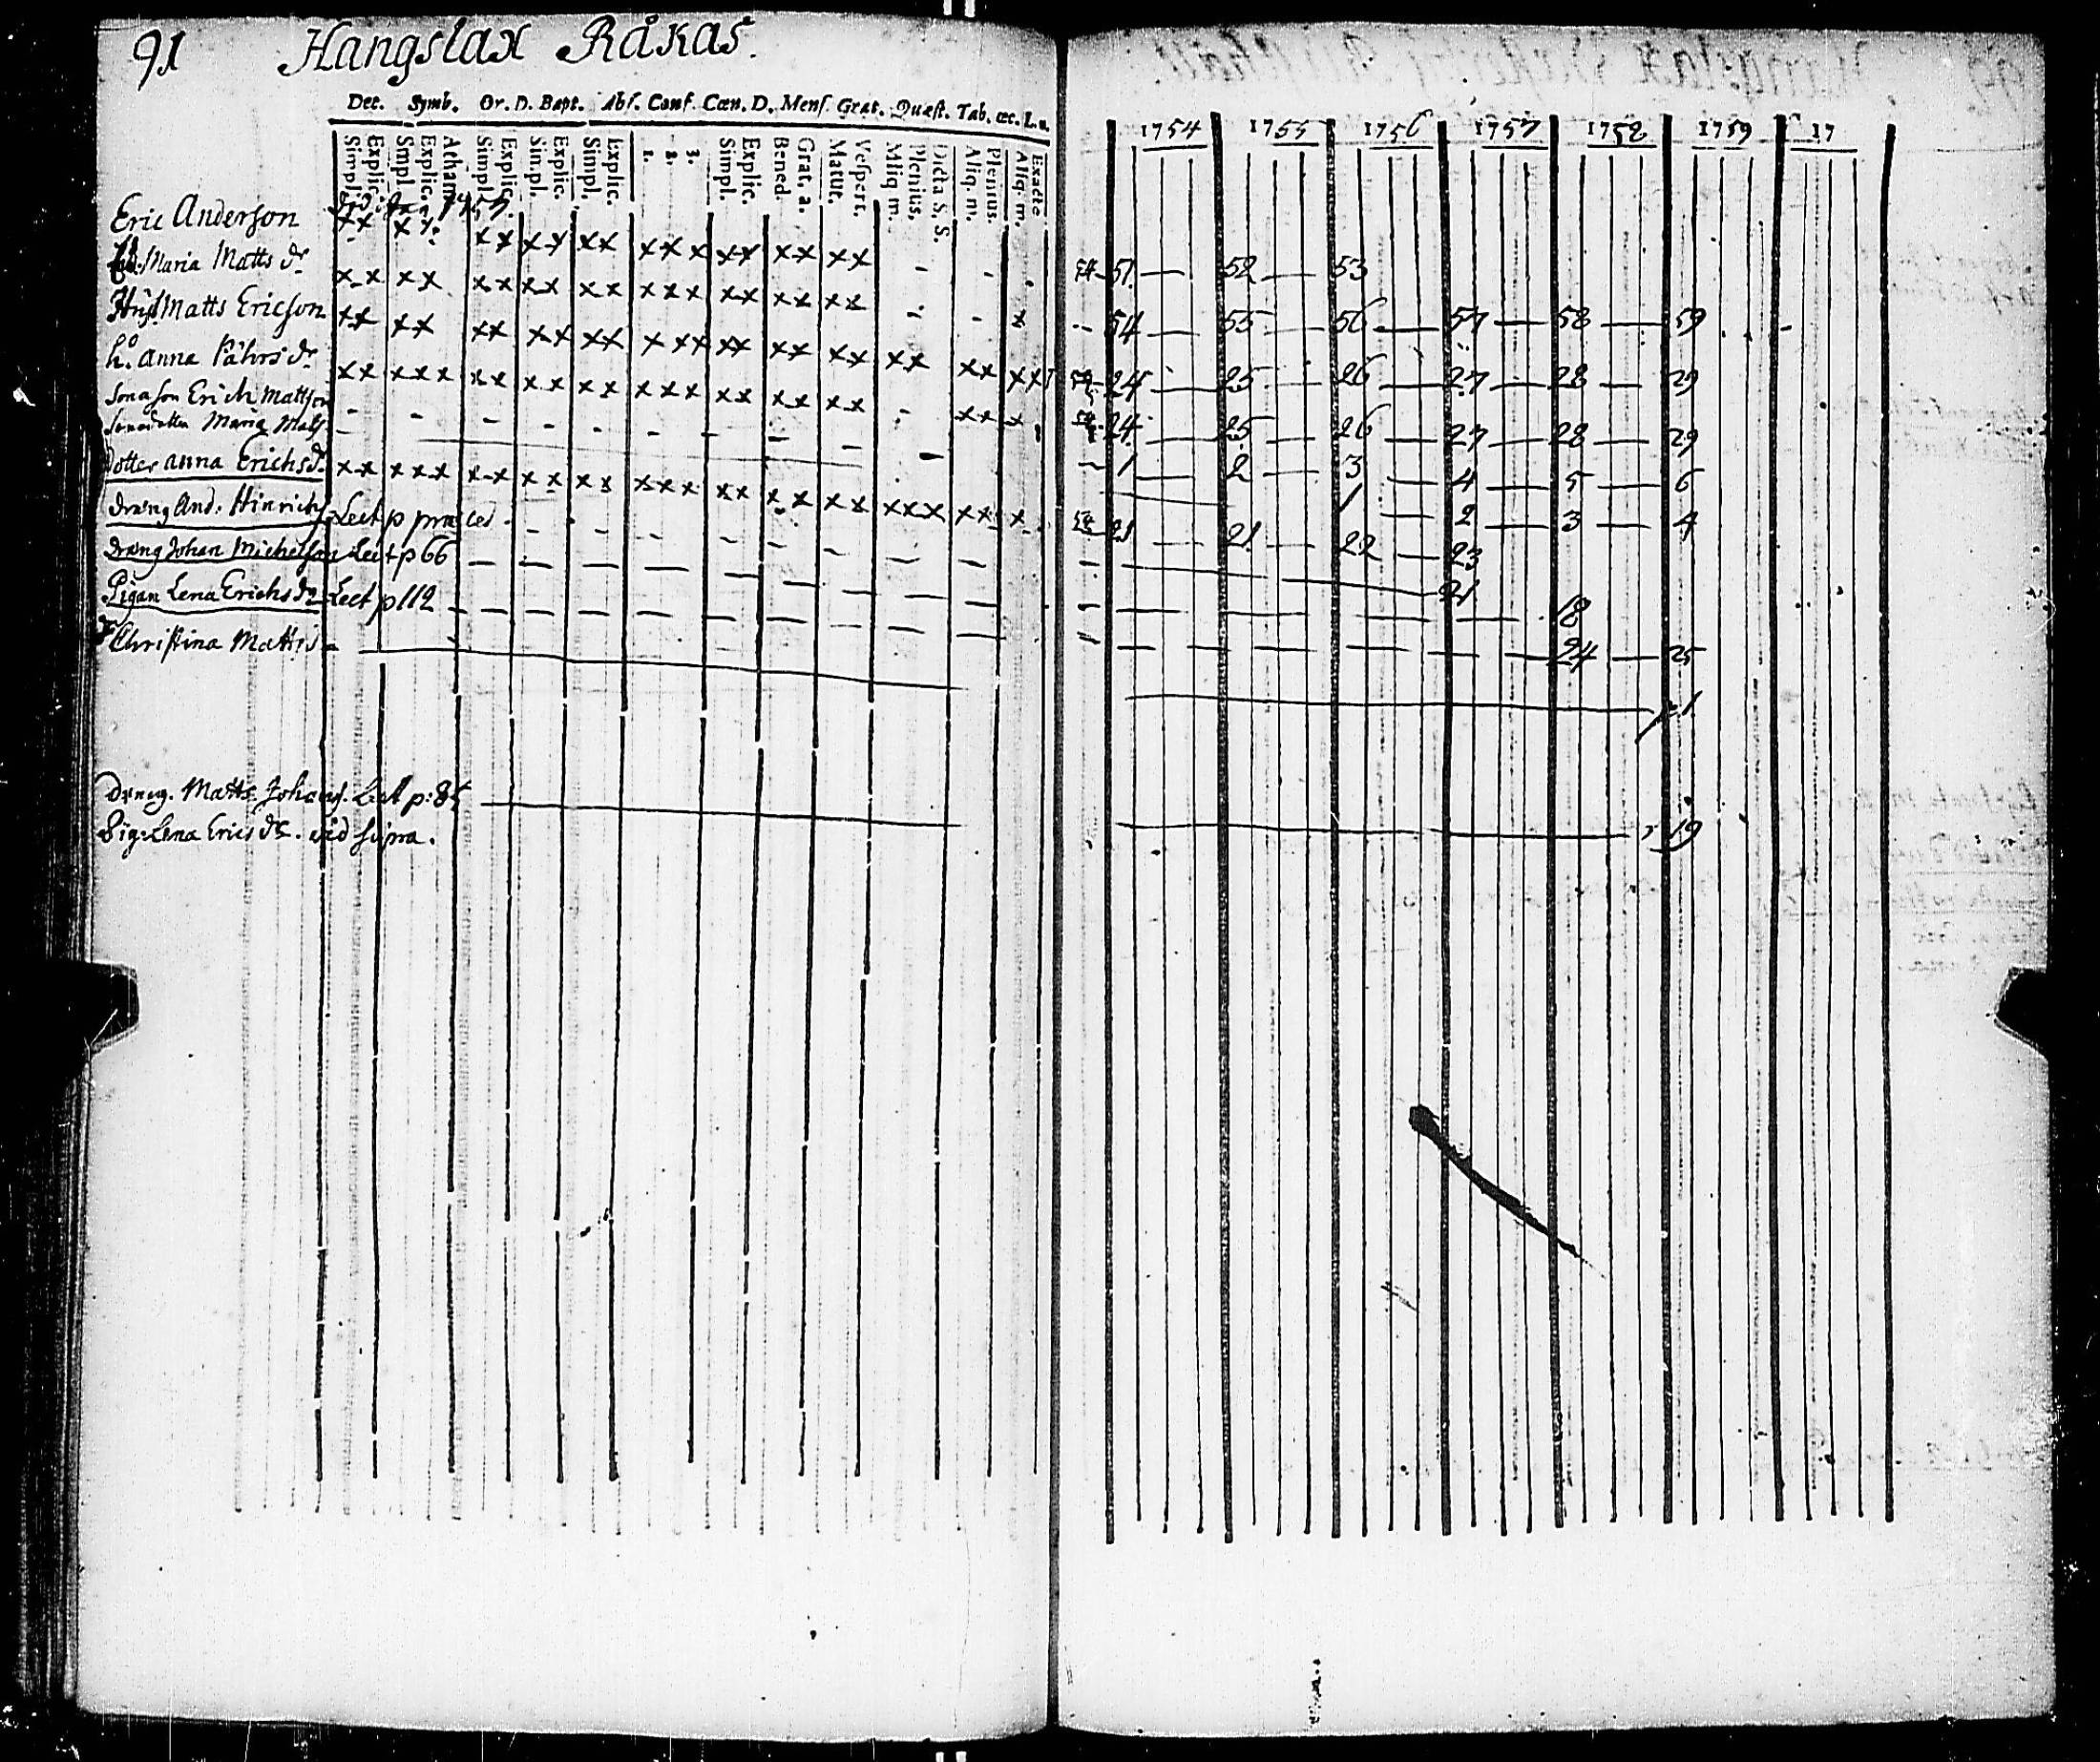 91 Hangslax Råkas.
Dec. Symb. Or. D. Bapt. Abs. Conf. Cœn. D. Mens. Grat. Quæst. Tab. œc. L.u.
Simpl. Explic. Smpl. Explic. Atham. Simpl. Explic. Simpl. Explic. Simpl. Explic. 1. 2. 3. Simpl. Explic. Bened. Grat. a. Matut. Vespert. Aliq m. Plenius. Dicta S. S. Aliq. m. Plenius. Aliq. m. Exacte
1754 1755 1756 1757 1758 1759 17
Eric Anderson
Maria Matts dr 51 52 53
Matts Ericson 54 55 56 57 58 59
h. Anna Påhrs dr 24 25 26 27 28 29
Sonason Erich Mattson 24 25 26 27 28 29
Maria Mats 1 2 3 4 5 6
Dotter Anna Erichs dr 1 2 3 4
dräng And. Hinrichs Lect p præced. 21 21 22 23
dräng Johan Michelson Lect p 66 21
Pigan Lena Erichs dr Lect p 112 18
Christina Matts 24 25
1
dräng. Matts Johans. Lect p: 85
Pig: Lena Erics dr. vid supra. 19